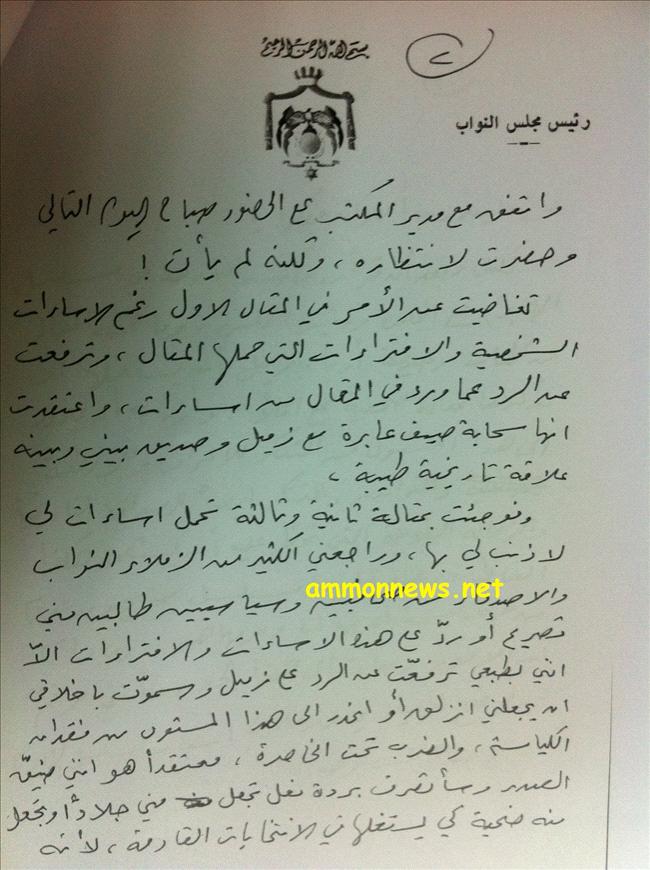 بسم الله الرحمن الرحيم
٢
رئيس مجلس النواب
واتفق مع مدير المكتب على الحضور صباح اليوم التالي
وحضرت لانتظاره ، ولكنه لم يأت !
تغاضيت عن الأمر في المقال الاول رغم الاساءات
الشخصية والافتراءات التي حملها المقال ، وترفعت
عن الرد عما ورد في المقال من اساءات ، واعتقدت
انها سحابة صيف عابرة مع زميل وصديق بيني وبينه
علاقة تاريخية طيبة ،
وفوجئت بمقالة ثانية وثالثة تحمل اساءات لي
لا ذنب لي بها ، وراجعني الكثير من الزملاء النواب
والاصدقاء من وسياسيين طالبين مني
تصريح أو ردّ على هذه الاساءات والافتراءات الاّ
انني بطبعي ترفعّت عن الرد على زميل وسموّت باخلاقي
ان يجعلني انزلق أو انحدر الى هذا المستوى من فقدان
الكياسة ، والضرب تحت الخاصرة ، معتقداً هو انني ضيّق
الصدر وسأتصرف بردة فعل تجعل مني جلاداً وتجعل
منه ضحية كي يستغلها في الانتخابات القادمة ، لأنه
ammonnews.net